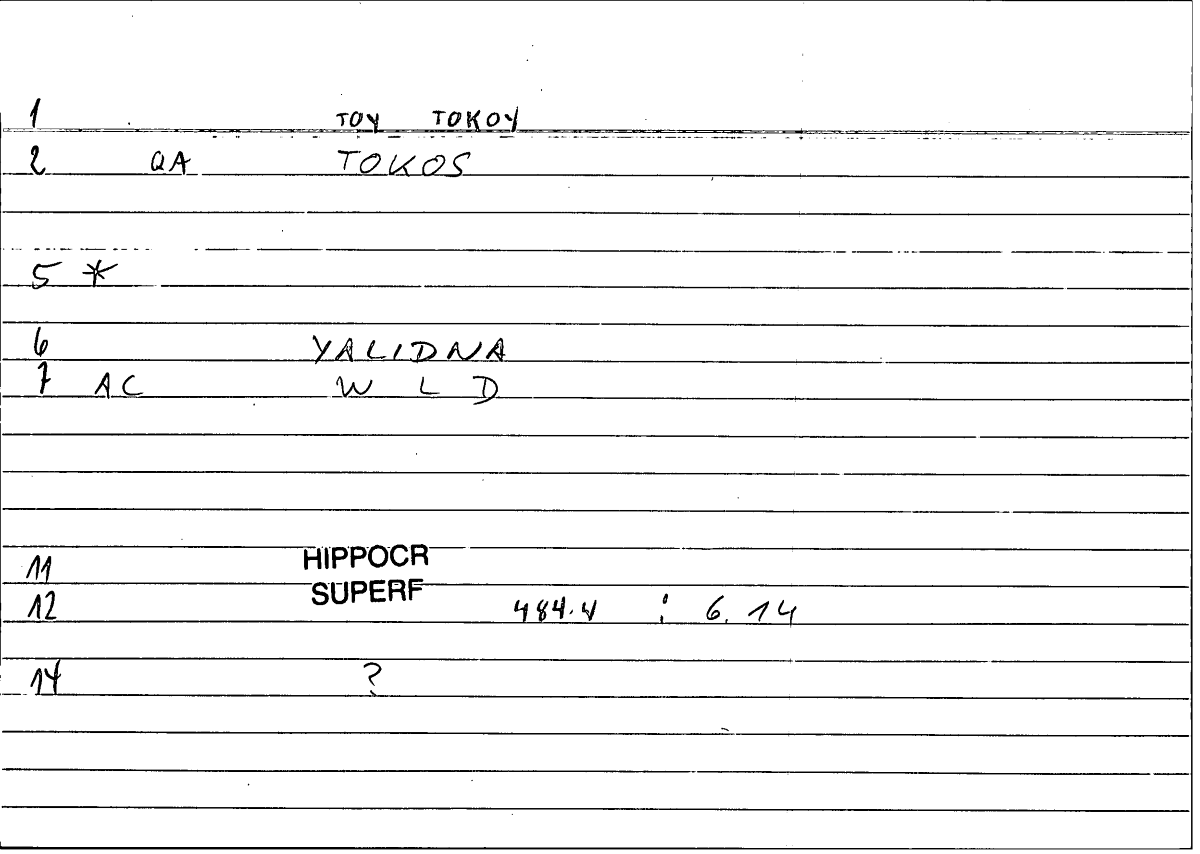 1 TOY TOKOY
2 QA TOKOS
5 *
6 YALIDNA
7 AC W L D
11 HIPPOCR
SUPERF
12 484.4 : 6.14
14 ?